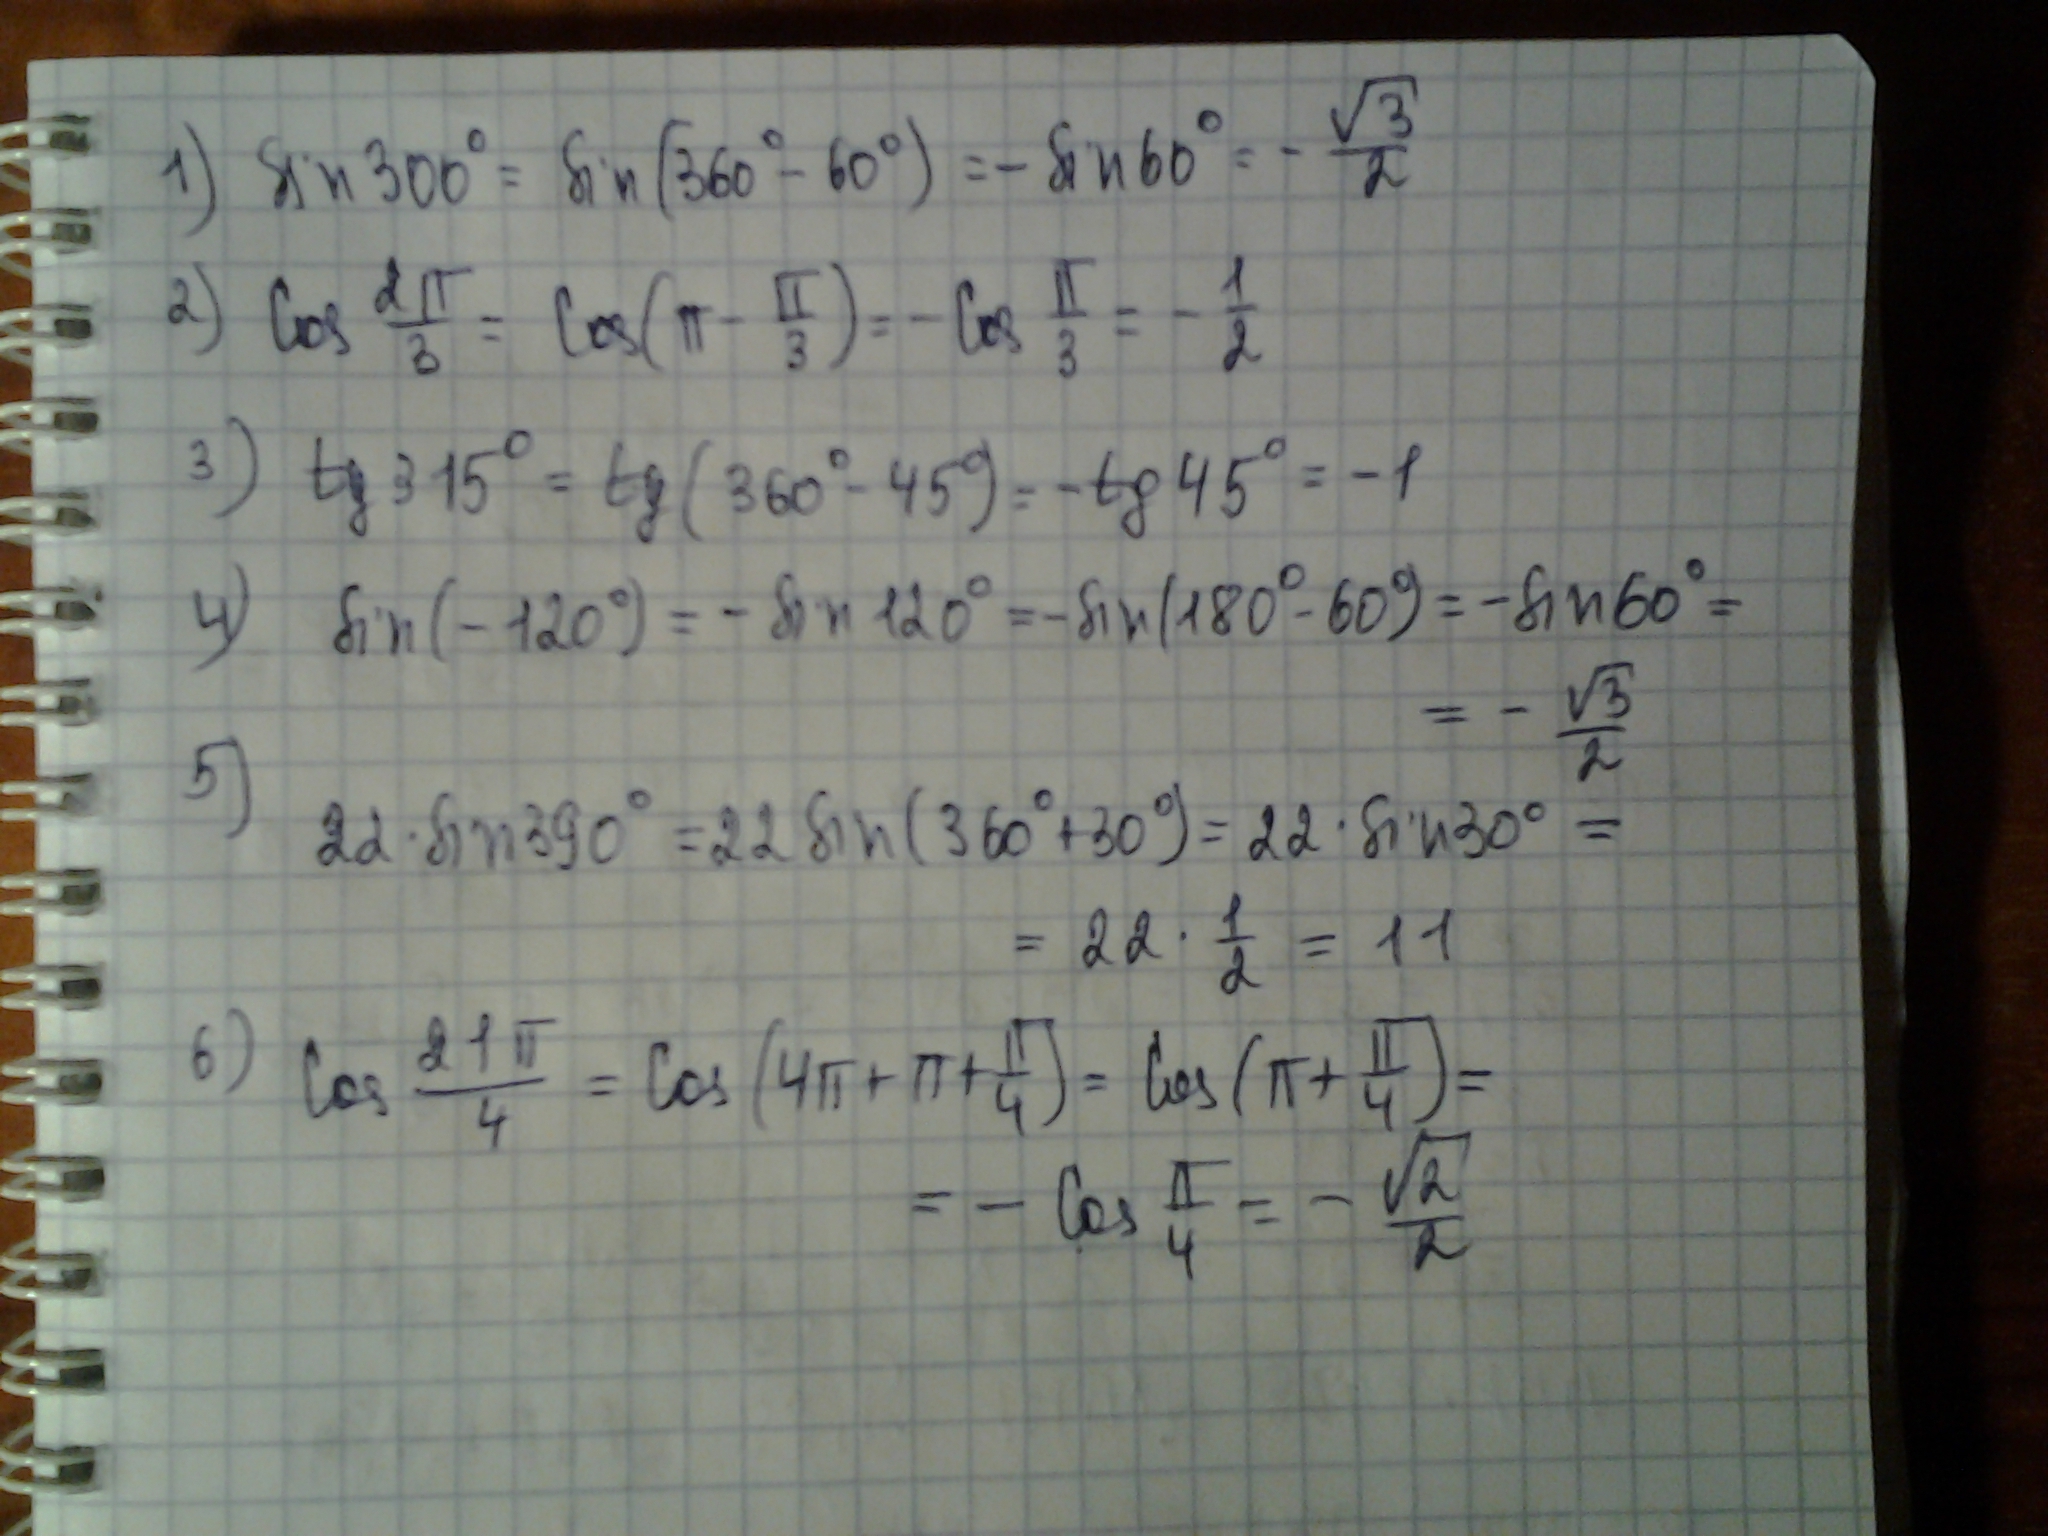 1) sin 300° = sin(360° - 60°) = - sin 60° = - √3/2
2) Cos 2π/3 = Cos(π - π/3) = - Cos π/3 = - 1/2
3) tg 315° = tg(360° - 45°) = - tg 45° = -1
4) sin(-120°) = - sin 120° = - sin(180° - 60°) = - sin 60° =
= - √3/2
5) 22 · sin 390° = 22 sin(360° + 30°) = 22 · sin 30° =
= 22 · 1/2 = 11
6) Cos 21π/4 = Cos(4π + π + π/4) = Cos(π + π/4) =
= - Cos π/4 = - √2/2